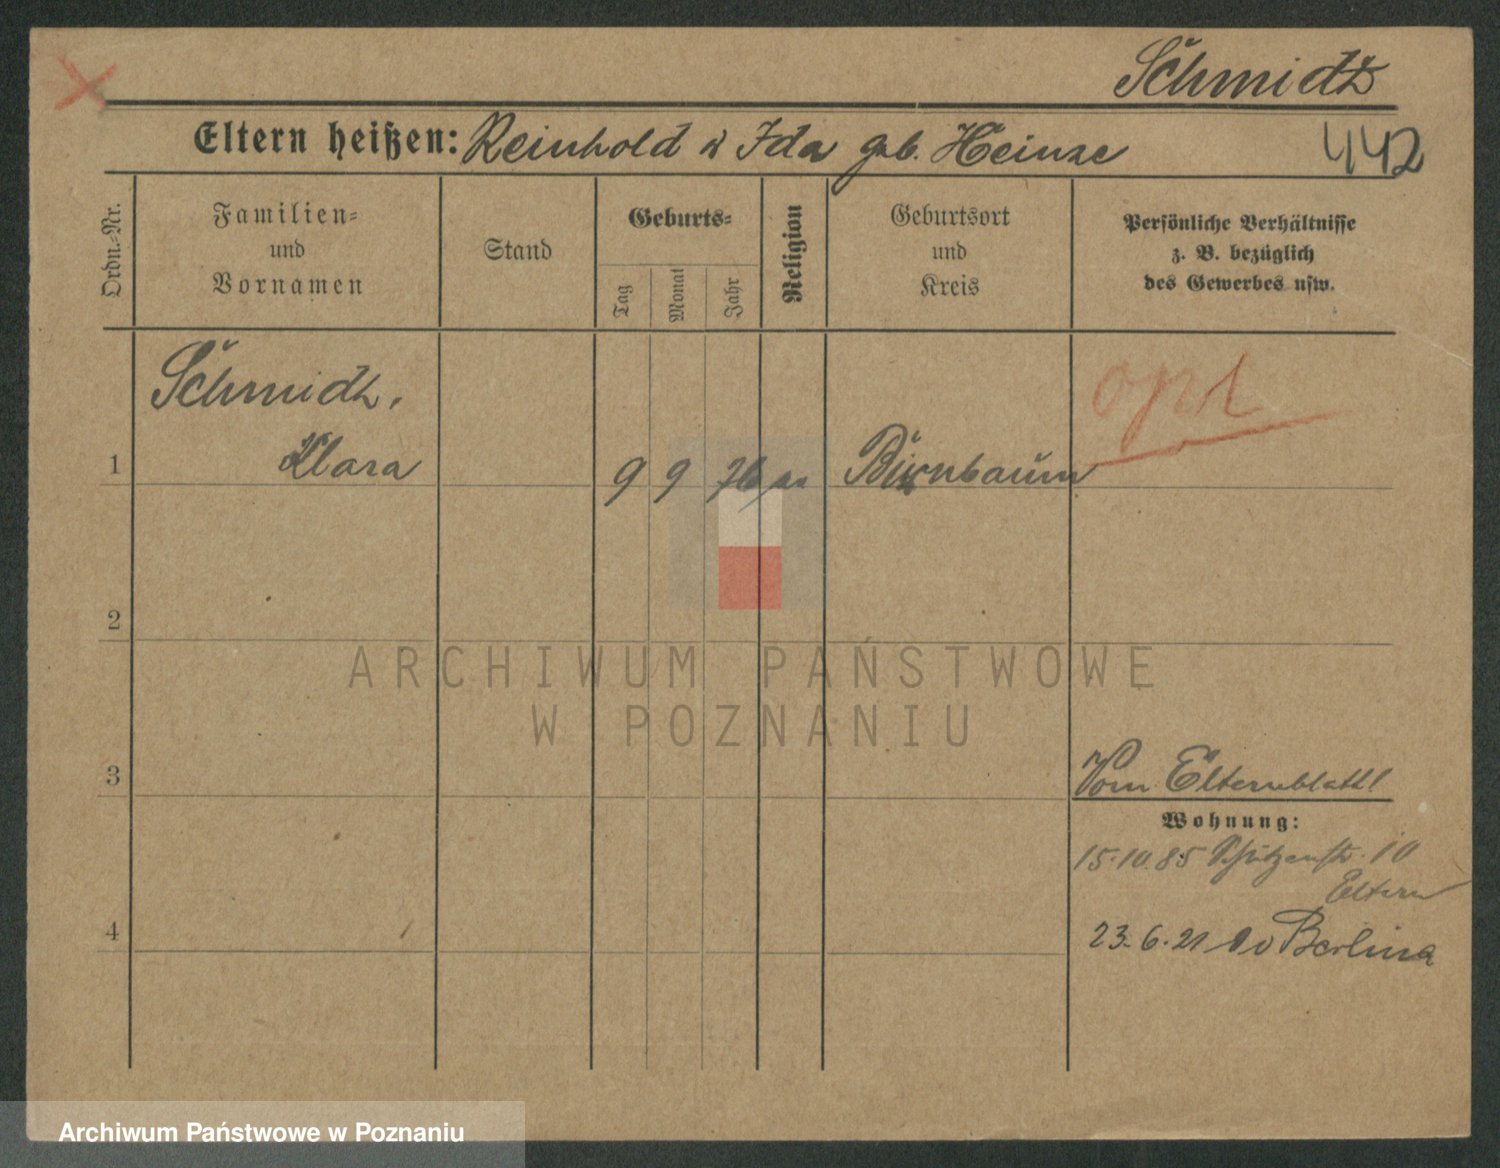 Schmidt
Eltern heißen: Reinhold u Ida geb. Heinze
442
Ordn.-Nr.
Familien-
und
Vornamen
Stand
Geburts-
Tag
Monat
Jahr
Religion
Geburtsort
und
Kreis
Persönliche Verhältnisse
z. B. bezüglich
des Gewerbes usw.
Schmidt,
opt
1 Klara 9 9 76 Birnbaum
2
ARCHIWUM PAŃSTWOWE
W POZNANIU
3
Vom Elternblatt
Wohnung:
15.10.85 Schützenstr. 10
Eltern
4
23.6.21 Do Berlina
Archiwum Państwowe w Poznaniu